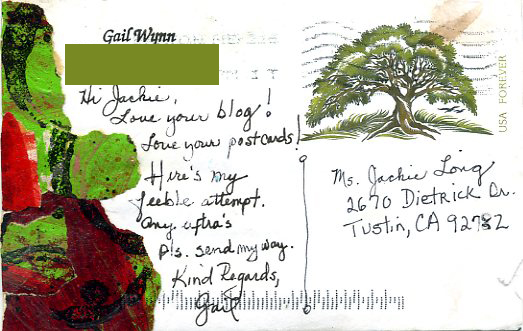 Gail Wynn
Hi Jackie,
Love your blog!
Love your postcards!
Here's my
feeble attempt.
Any extra's
pls. send my way.
Kind Regards,
Gail
USA FOREVER
Ms. Jackie Long
2670 Dietrick Dr.
Tustin, CA 92782